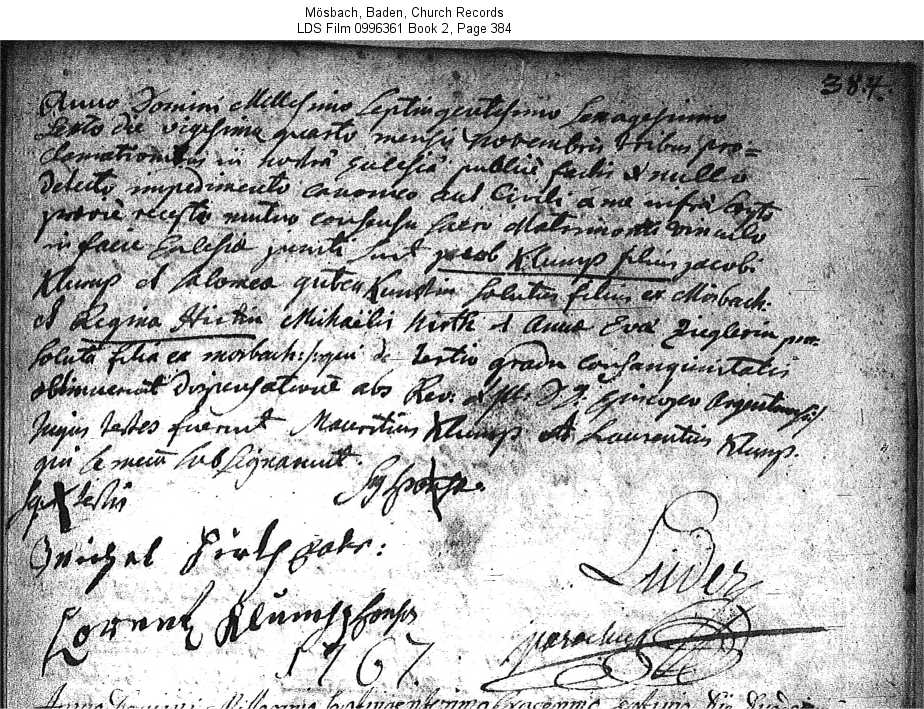 Mösbach, Baden, Church Records
LDS Film 0996361 Book 2, Page 384
384.
Anno Domini Millesimo Septingentesimo Sexagesimo
Sexto die vigesima quarto mensis Novembris tribus pro=
clamationibus in nostra Eclesia publicè factis & nullo
detecto impedimento canonico aut Civili a me infra scripto
recepto mutuo consensu sacri Matrimonii vinculo
in facie Eclesiæ juncti sunt Jacob Klump filius Jacobi
Klump et Salomea gutenkunstin solutus filius ex Mösbach.
et Regina Hirthin Michaëlis Hirth et Annæ Evæ Zieglerin
soluta filia ex mösbach: qui de tertio gradu consanguinitatis
obtinuerunt dispensationem abs Rev: Episcopo Argentinensi
hujus testes fuerunt Mauritius Klump et Laurentius Klump.
qui se mecum subsignarunt.
testis
Michel Hirth
Lorentz Klump
Luder
parochus
1767.
Anno Domini